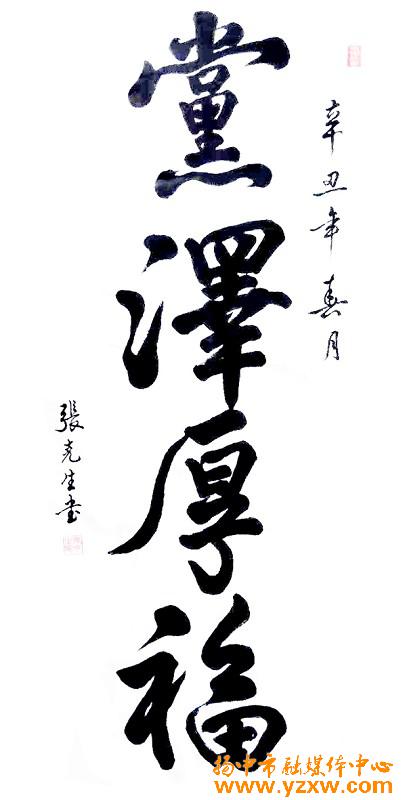 辛丑年春月
黨澤厚福
張克生书
扬中市融媒体中心
www.yzxw.com